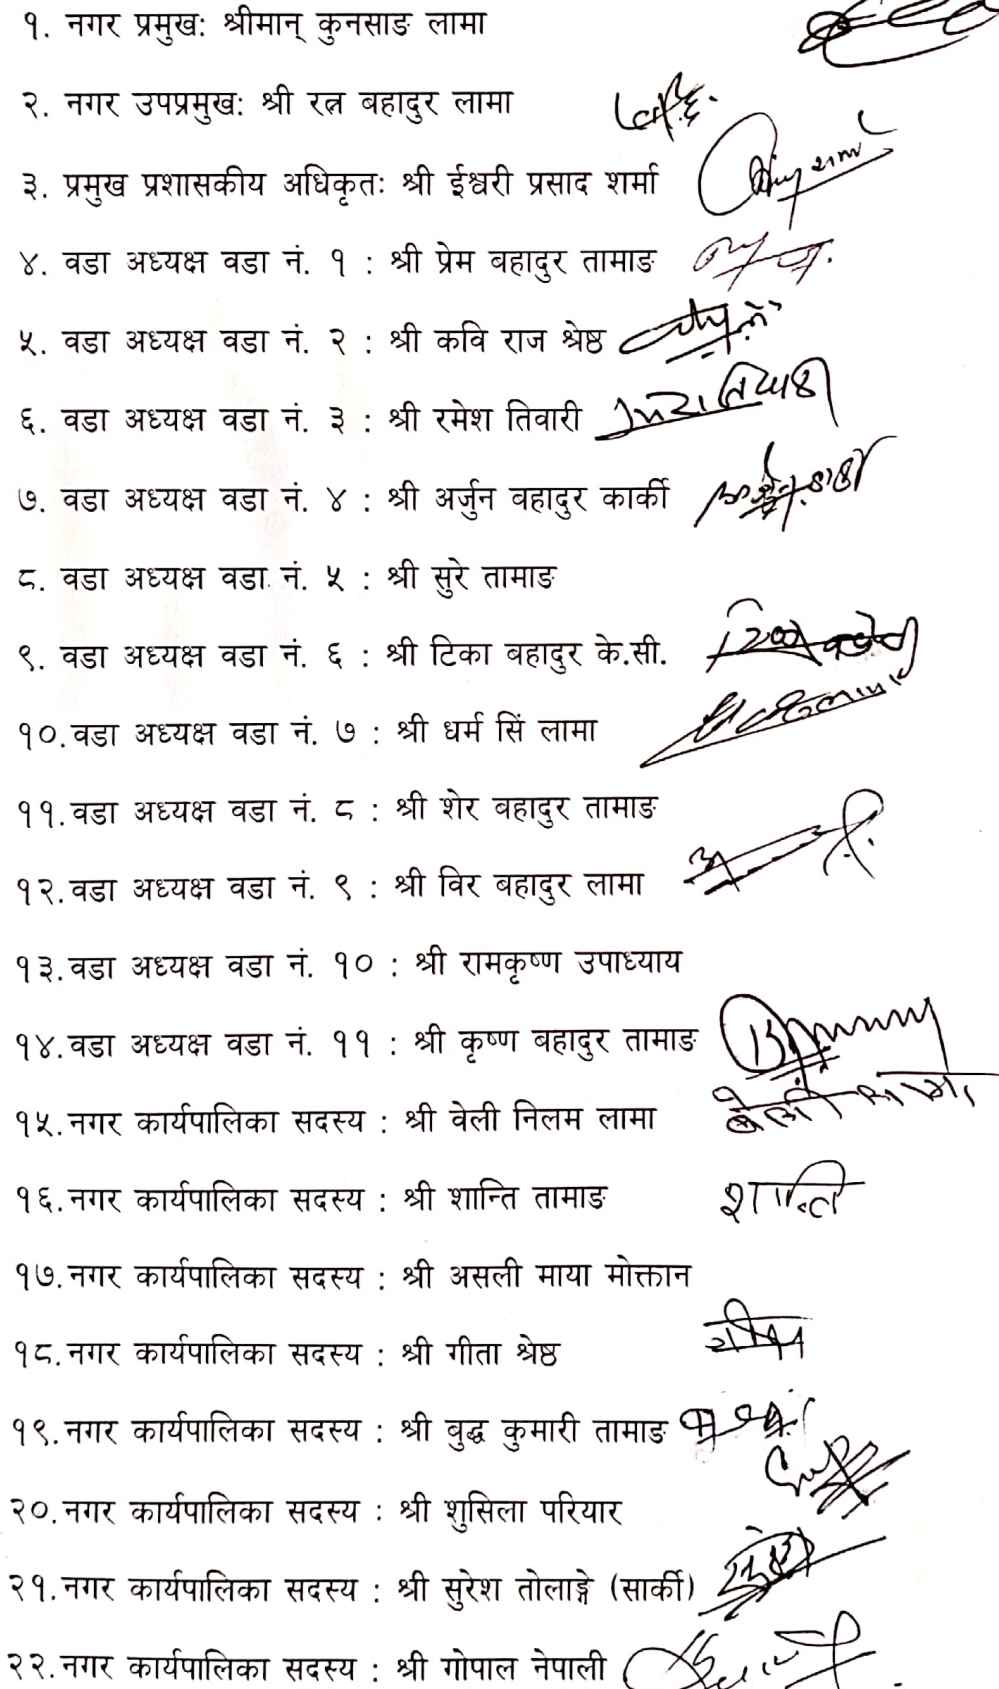 १. नगर प्रमुख: श्रीमान् कुनसाङ लामा
२. नगर उपप्रमुख: श्री रत्न बहादुर लामा
३. प्रमुख प्रशासकीय अधिकृतः श्री ईश्वरी प्रसाद शर्मा
४. वडा अध्यक्ष वडा नं. १ : श्री प्रेम बहादुर तामाङ
५. वडा अध्यक्ष वडा नं. २ : श्री कवि राज श्रेष्ठ
६. वडा अध्यक्ष वडा नं. ३ : श्री रमेश तिवारी
७. वडा अध्यक्ष वडा नं. ४ : श्री अर्जुन बहादुर कार्की
८. वडा अध्यक्ष वडा नं. ५ : श्री सुरे तामाङ
९. वडा अध्यक्ष वडा नं. ६ : श्री टिका बहादुर के.सी.
१०. वडा अध्यक्ष वडा नं. ७ : श्री धर्म सिं लामा
११. वडा अध्यक्ष वडा नं. ८ : श्री शेर बहादुर तामाङ
१२. वडा अध्यक्ष वडा नं. ९ : श्री विर बहादुर लामा
१३. वडा अध्यक्ष वडा नं. १० : श्री रामकृष्ण उपाध्याय
१४. वडा अध्यक्ष वडा नं. ११ : श्री कृष्ण बहादुर तामाङ
१५. नगर कार्यपालिका सदस्य : श्री वेली निलम लामा
१६. नगर कार्यपालिका सदस्य : श्री शान्ति तामाङ शान्ति
१७. नगर कार्यपालिका सदस्य : श्री असली माया मोक्तान
१८. नगर कार्यपालिका सदस्य : श्री गीता श्रेष्ठ
१९. नगर कार्यपालिका सदस्य : श्री बुद्ध कुमारी तामाङ
२०. नगर कार्यपालिका सदस्य : श्री शुसिला परियार
२१. नगर कार्यपालिका सदस्य : श्री सुरेश तोलाङ्गे (सार्की)
२२. नगर कार्यपालिका सदस्य : श्री गोपाल नेपाली